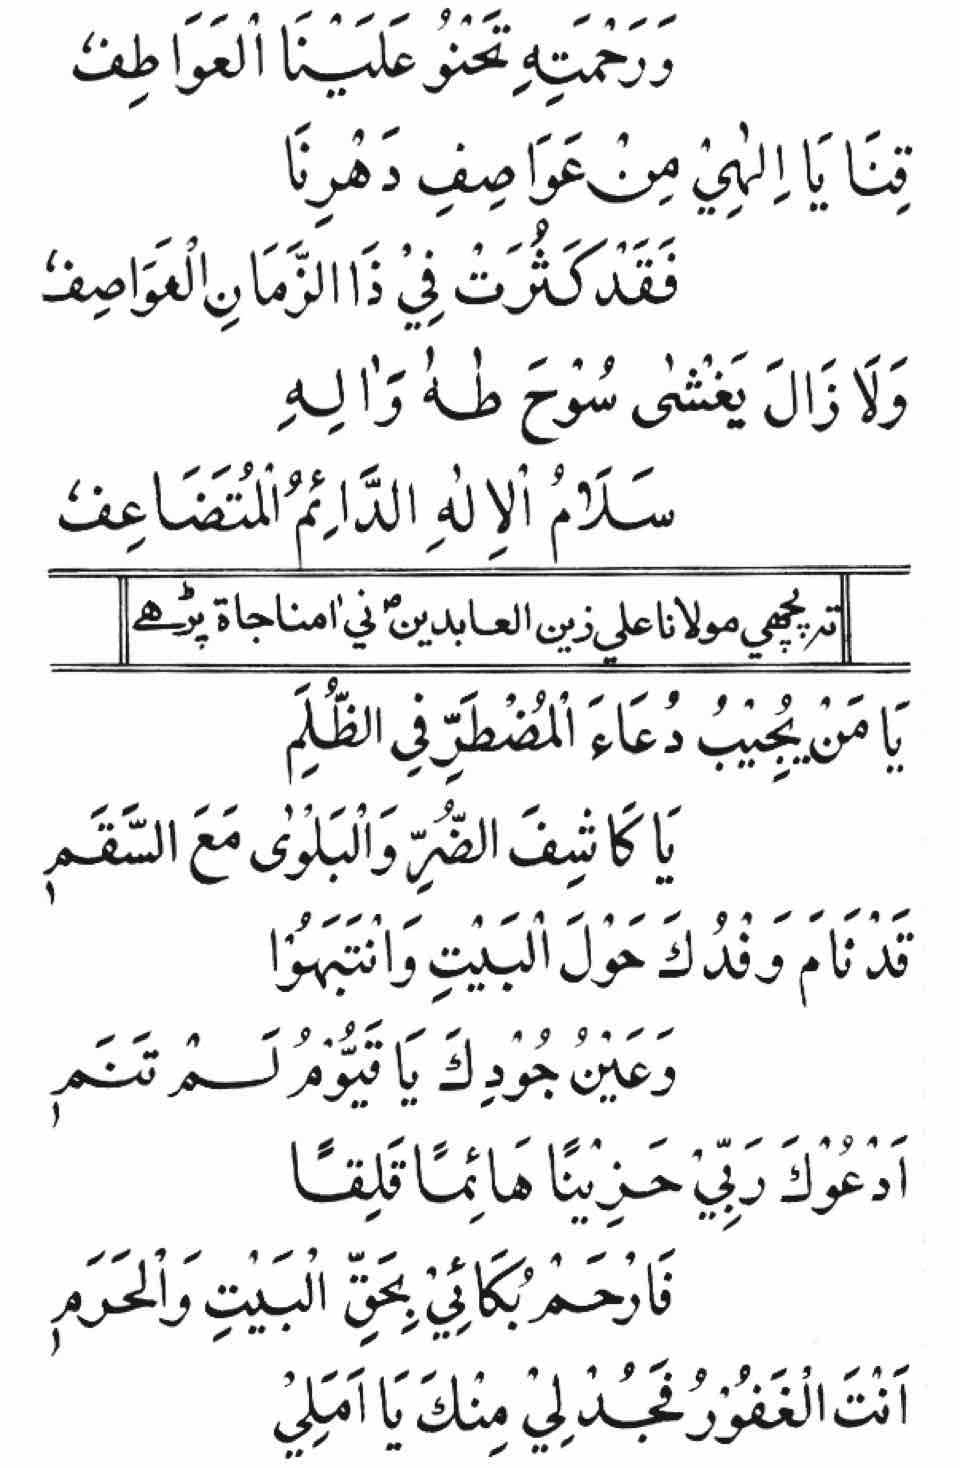 وَرَحْمَتِهٖ تَحْنُوْ عَلَيْنَا اْلعَوَاطِفُ
قِنَا يَا اِلٰهِيْ مِنْ عَوَاصِفِ دَهْرِنَا
فَقَدْ كَثُرَتْ فِيْ ذَا الزَّمَانِ الْعَوَاصِفُ
وَلَا زَالَ يَغْشٰى سُوْحَ طٰهٰ وَاٰلِهِ
سَلَامُ اْلاِلٰهِ الدَّائِمُ اْلمُتَضَاعِفُ
تہ پچھي مولانا علي زين العابدين ص ني ا مناجاة پڑھے
يَا مَنْ يُجِيْبُ دُعَاءَ اْلمُضْطَرِّ فِي الظُّلَمِ
يَا كَاشِفَ الضُّرِّ وَالْبَلْوٰى مَعَ السَّقَمِ
قَدْ نَامَ وَفْدُكَ حَوْلَ اْلبَيْتِ وَانْتَبَهُوْا
وَعَيْنُ جُوْدِكَ يَا قَيُّوْمُ لَمْ تَنَمِ
اَدْعُوْكَ رَبِّيْ حَزِيْنًا هَائِمًا قَلِقًا
فَارْحَمْ بُكَائِيْ بِحَقِّ الْبَيْتِ وَاْلحَرَمِ
اَنْتَ الْغَفُوْرُ فَجُدْ لِيْ مِنْكَ يَا اَمَلِيْ